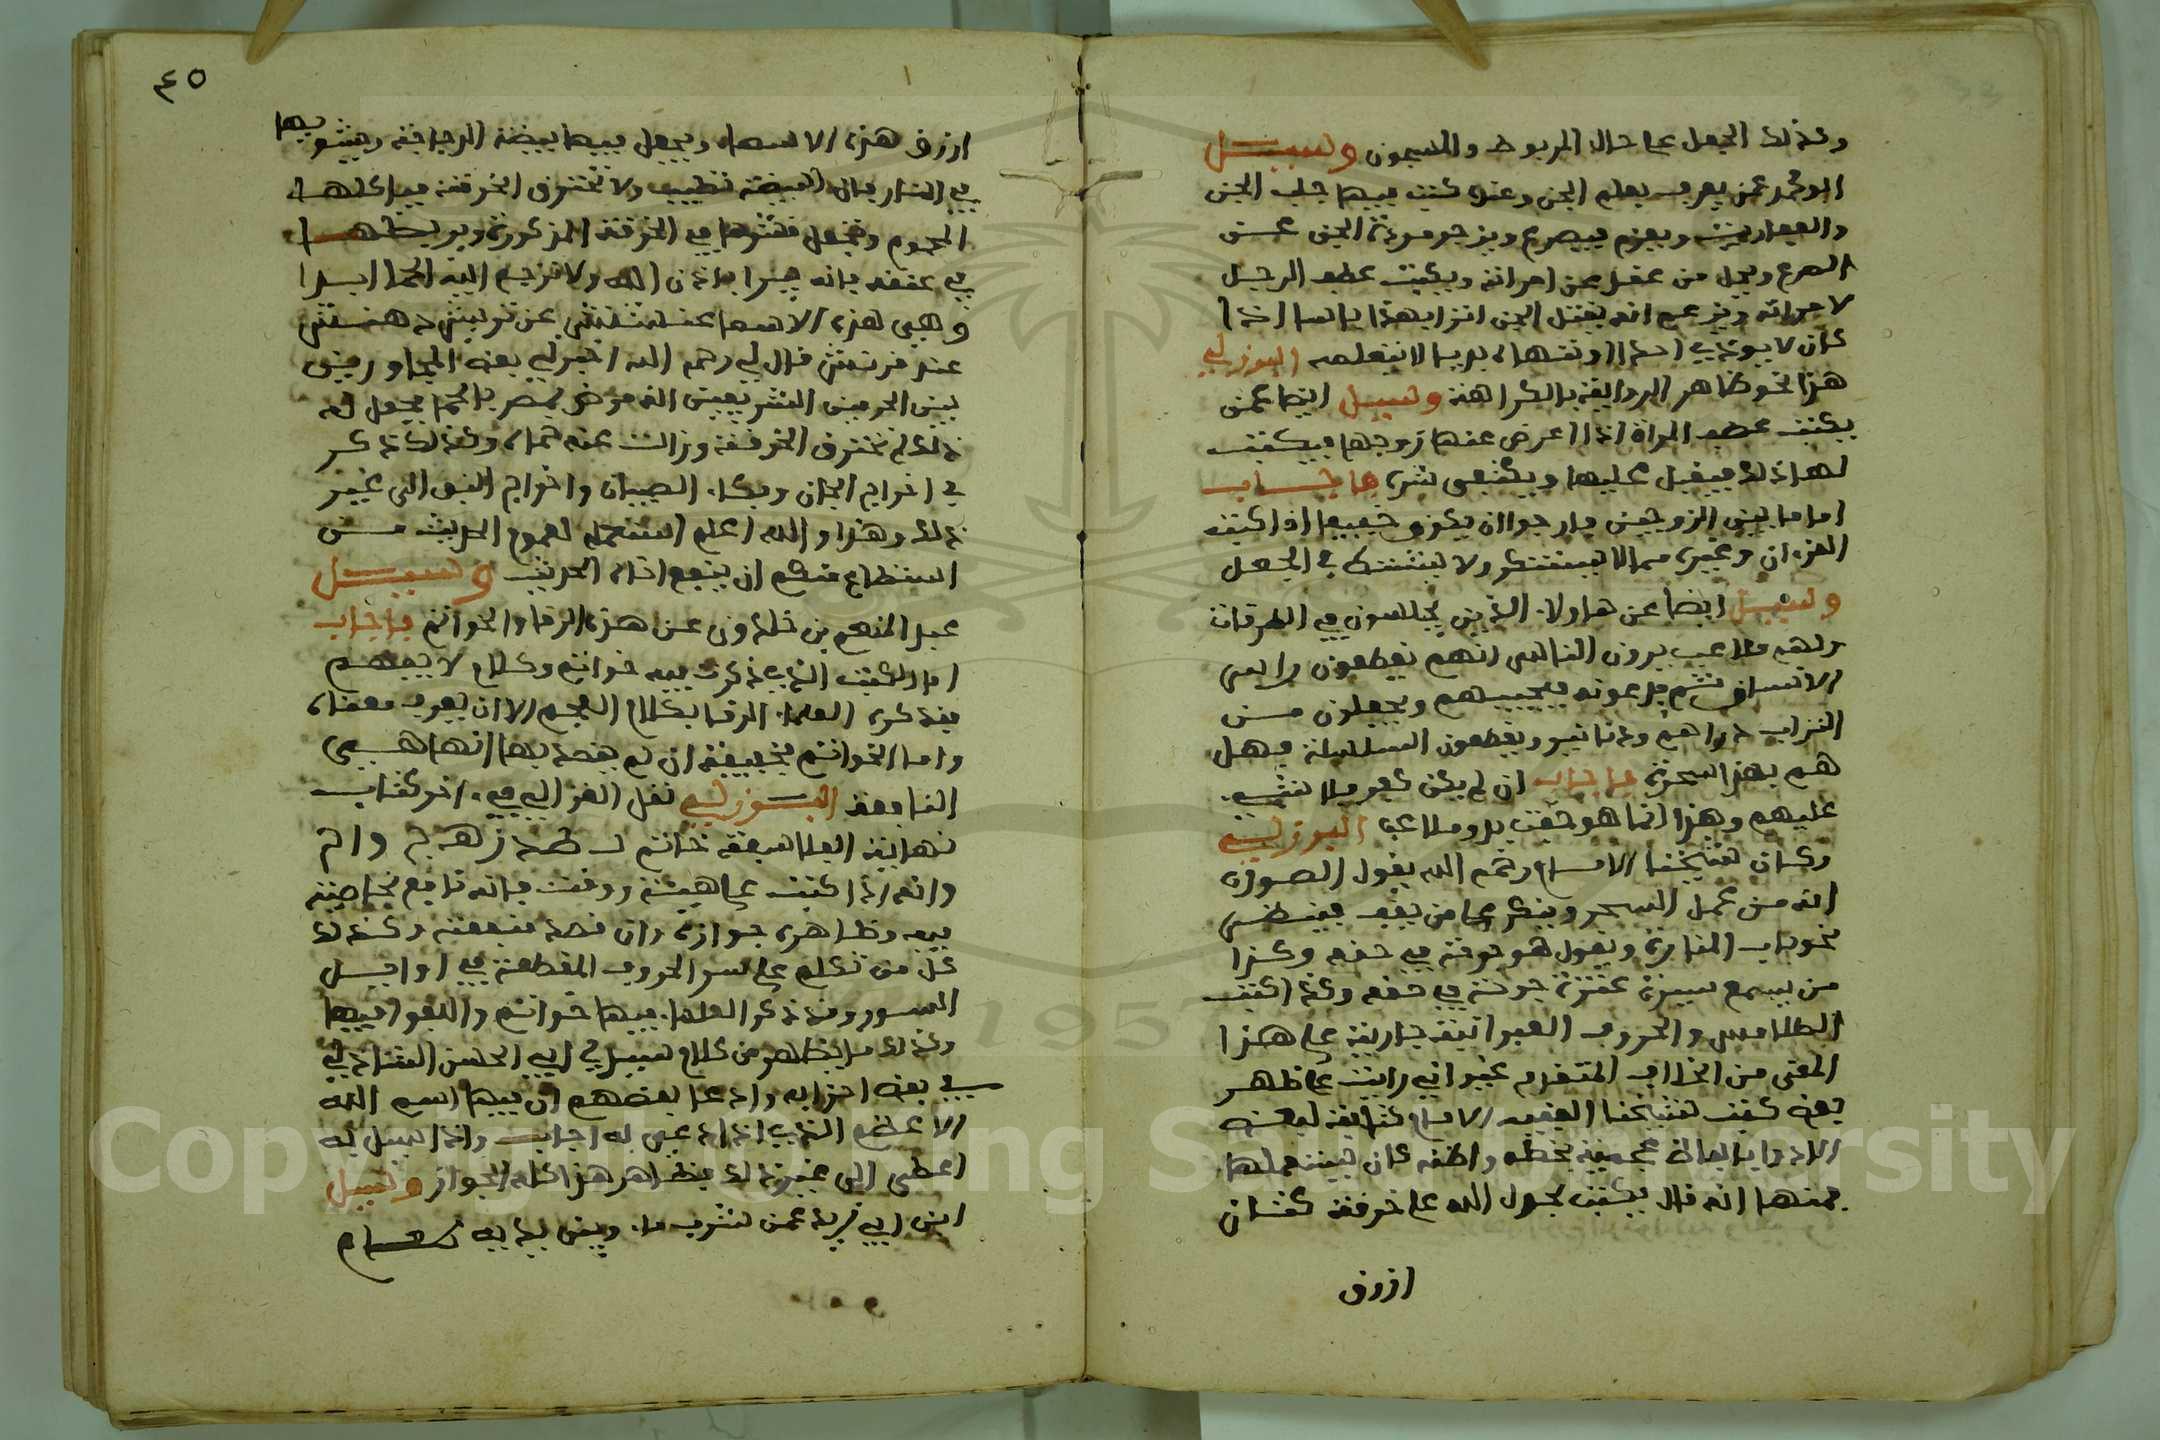 وكذلك الجعل على حال المربوط والمسجون وسيل
ابو محمد عمن يعرف بعلم الجن وعنده كتب فيها جلب الجن
والعفاريت ويعزم فيصرع ويزجر مردة الجن عن
الصرع ويحل من عقل عن امراته ويكتب عطف الرجل
لامراته ويزعم انه يقتل الجن اترى بهذا باسا اذا
كان لا يوذي احدا او تنهاه بريا لا يتعلمه البرزلي
هذا نحو ظاهر الرواية بالكراهة وسيل ايضا عمن
يكتب عطف المراة اذا اعرض عنها زوجها فيكتب
لها ذلك فيقبل عليها ويكتب شره فاجاب
اما ما بين الزوجين فارجو ان يكون خفيفا اذا كتب
القرءان وغيره مما لا يستنكر ولا يشتط في الجعل
وسيل ايضا عن هاولاء الذين يجلسون في الطرقات
ولهم ملاعب يرون الناس انهم يقطعون راس
الانسان ثم يدعونه فيجيبهم ويجعلون من
التراب دراهم ودنانير ويقطعون السلسلة فهل
هم بهذا سحرة فاجاب ان لم يكن كفر فلا شيء
عليهم وهذا انما هو خفة يد وملاعب البرزلي
وكان شيخنا الامام رحمه الله يقول الصواب
انه من عمل السحر وينكر على من يقف ينظر
نحو باب المنارة ويقول هو جرحة في حقه وكذا
من يسمع سيرة عنترة جرحة في حقه وكذا كتب
الطلامس والحروف العبرانية جارية على هذا
المعنى من الخلاف المتقدم غير اني رايت على ظهر
بعض كتب شيخنا الفقيه الامام كتابة لبعض
الادوا بالفاظ عجمية بخطه واظنه كان يستعملها
فمنها انه قال يكتب بحول الله على خرقة كتان
ازرق
٤٥
ازرق هذه الاسماء ويجعل فيها بيضة الدجاجة ويشويها
في النار فان البيضة تطيب ولا تحترق الخرقة فياكلها
المحموم وتجعل قشرها في الخرقة المذكورة ويربطها
في عنقه فانه يبرا باذن الله ولا ترجع اليه الحما ابدا
وهي هذه الاسما
قال لي رحمه الله اخبرني بعض المجاورين
بين الحرمين الشريفين انه مرض بمصر بالحما فجعل له
ذلك لم تحترق الخرقة وزالت عنه حماه وكذلك ذكر
في اخراج الجان وبكاء الصبيان واخراج البق الى غير
ذلك وهذا والله اعلم استعمله لعموم الحديث من
استطاع منكم ان ينفع اخاه الحديث وسيل
عبد المنعم بن خلدون عن هذه الرقا والخواتم فاجاب
اما الكتب الذي ذكرت فيه خواتم وكلام لا يفهم
فقد كره العلماء الرقا بكلام العجم الا ان يعرف معناه
واما الخواتم فخفيفة ان لم يقصد بها انها هي
النافعة البرزلي نقل الغزالي في ءاخر كتاب
نهاية الفلاسفة خاتم ب ط د ز ه ج و ا ح
وانه اذا كتب على هيئة ووقت فانه نافع لخاصية
فيه وظاهره جوازه وان قصد منفعته وكذلك
كل من تكلم على سر الحروف المقطعة في اوايل
السور وقد ذكر العلماء فيها خواتم والفوا فيها
وكذلك ما يظهر من كلام سيدي ابي الحسن الشاذلي
في بعض احزابه وادعا بعضهم ان فيها اسم الله
الاعظم الذي اذا دعي به اجاب واذا سيل به
اعطى الى غير ذلك فظاهر هذا كله الجواز وسيل
ابن ابي زيد عمن شرب ماء وبين يديه طعام